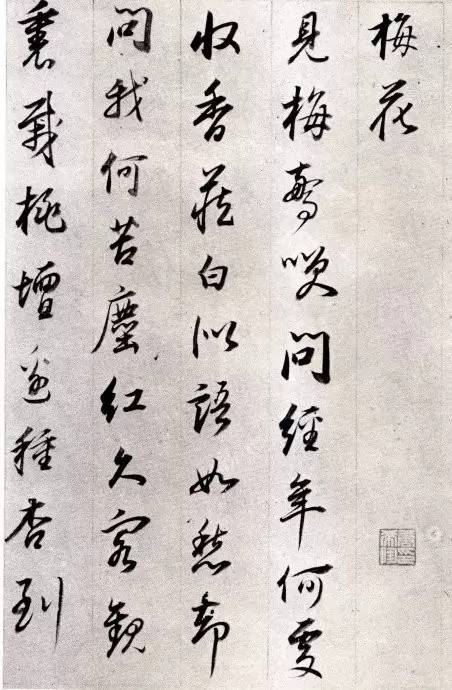 梅花
見梅驚咲問經年何處
收香藏白似語如愁却
問我何苦塵紅久客觀
裏栽桃壇邊種杏到